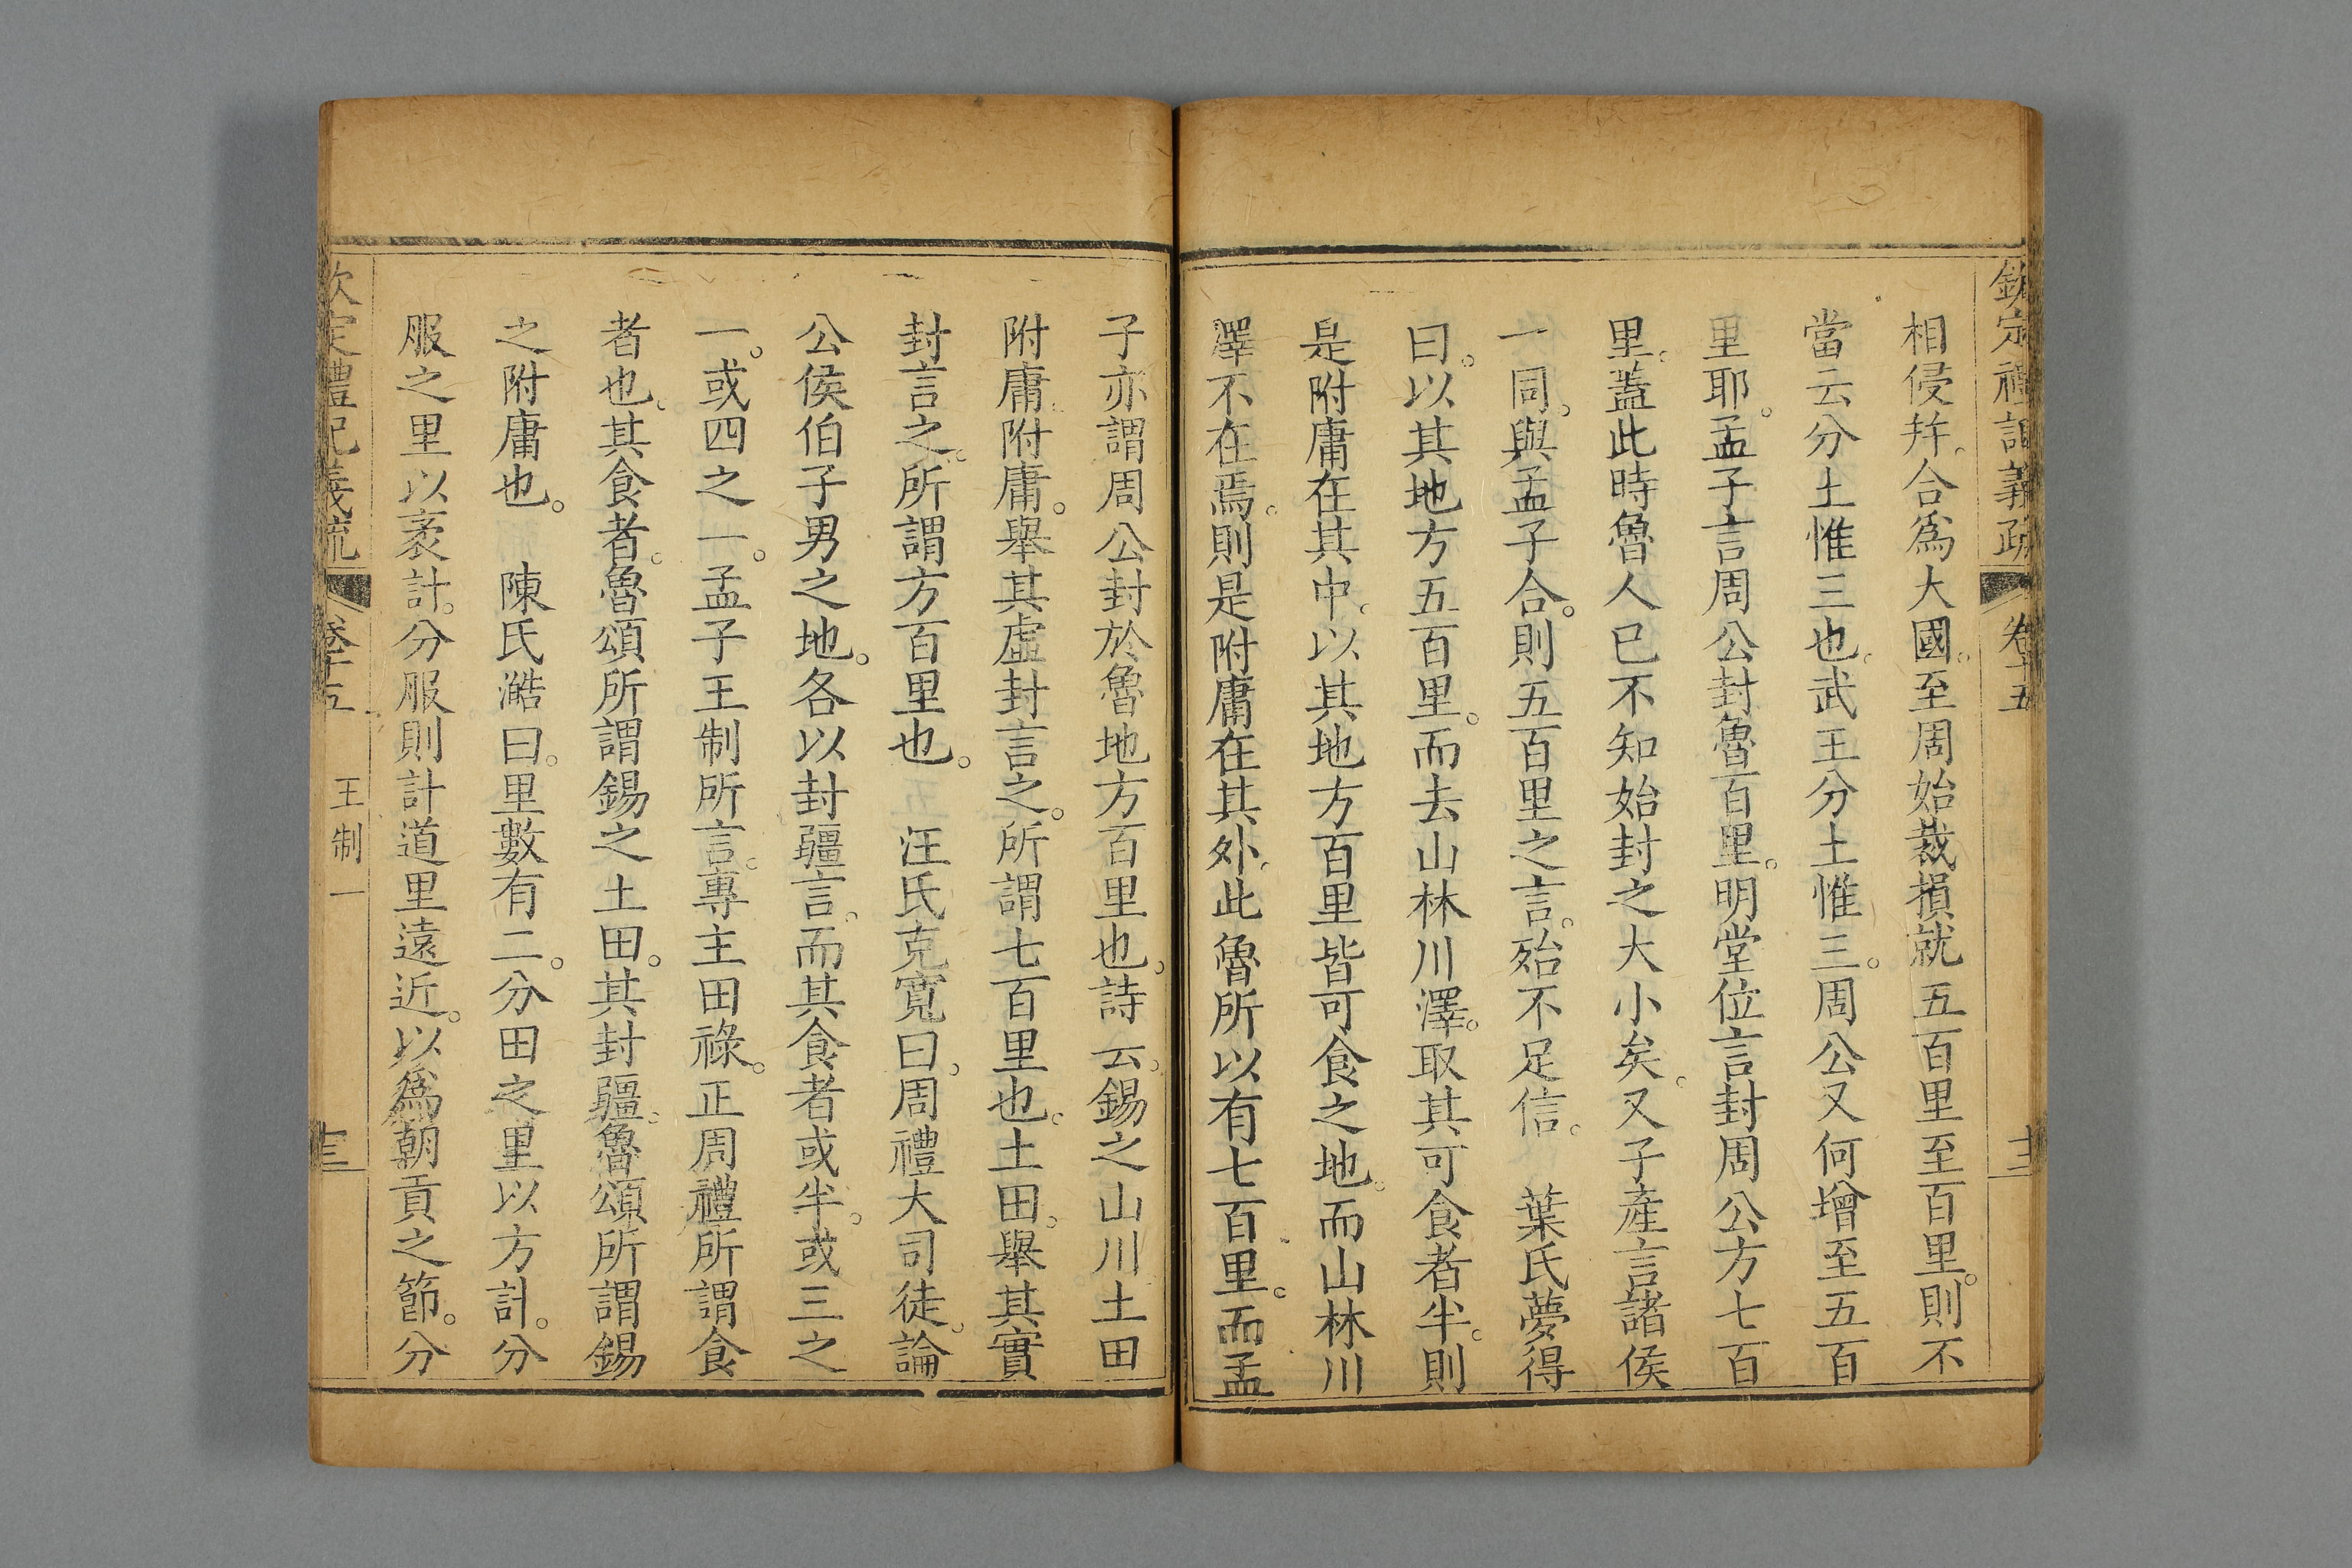 欽定禮記義疏 卷十五 十二
相侵幷。合爲大國。至周始裁損就五百里至百里。則不
當云分土惟三也。武王分土惟三。周公又何增至五百
里耶。孟子言周公封魯百里。明堂位言封周公方七百
里。蓋此時魯人已不知始封之大小矣。又子產言諸侯
一同。與孟子合。則五百里之言。殆不足信。 葉氏夢得
曰。以其地方五百里。而去山林川澤。取其可食者半。則
是附庸在其中。以其地方百里皆可食之地。而山林川
澤不在焉。則是附庸在其外。此魯所以有七百里。而孟
子亦謂周公封於魯地方百里也。詩云。錫之山川土田
附庸。附庸。舉其虛封言之。所謂七百里也。土田。舉其實
封言之。所謂方百里也。 汪氏克寬曰。周禮大司徒。論
公侯伯子男之地。各以封疆言。而其食者或半。或三之
一。或四之一。孟子王制所言。專主田祿。正周禮所謂食
者也。其食者。魯頌所謂錫之土田。其封疆。魯頌所謂錫
之附庸也。 陳氏澔曰。里數有二。分田之里以方計。分
服之里以袤計。分服則計道里遠近。以爲朝貢之節。分
欽定禮記義疏 卷十五 王制一 十三